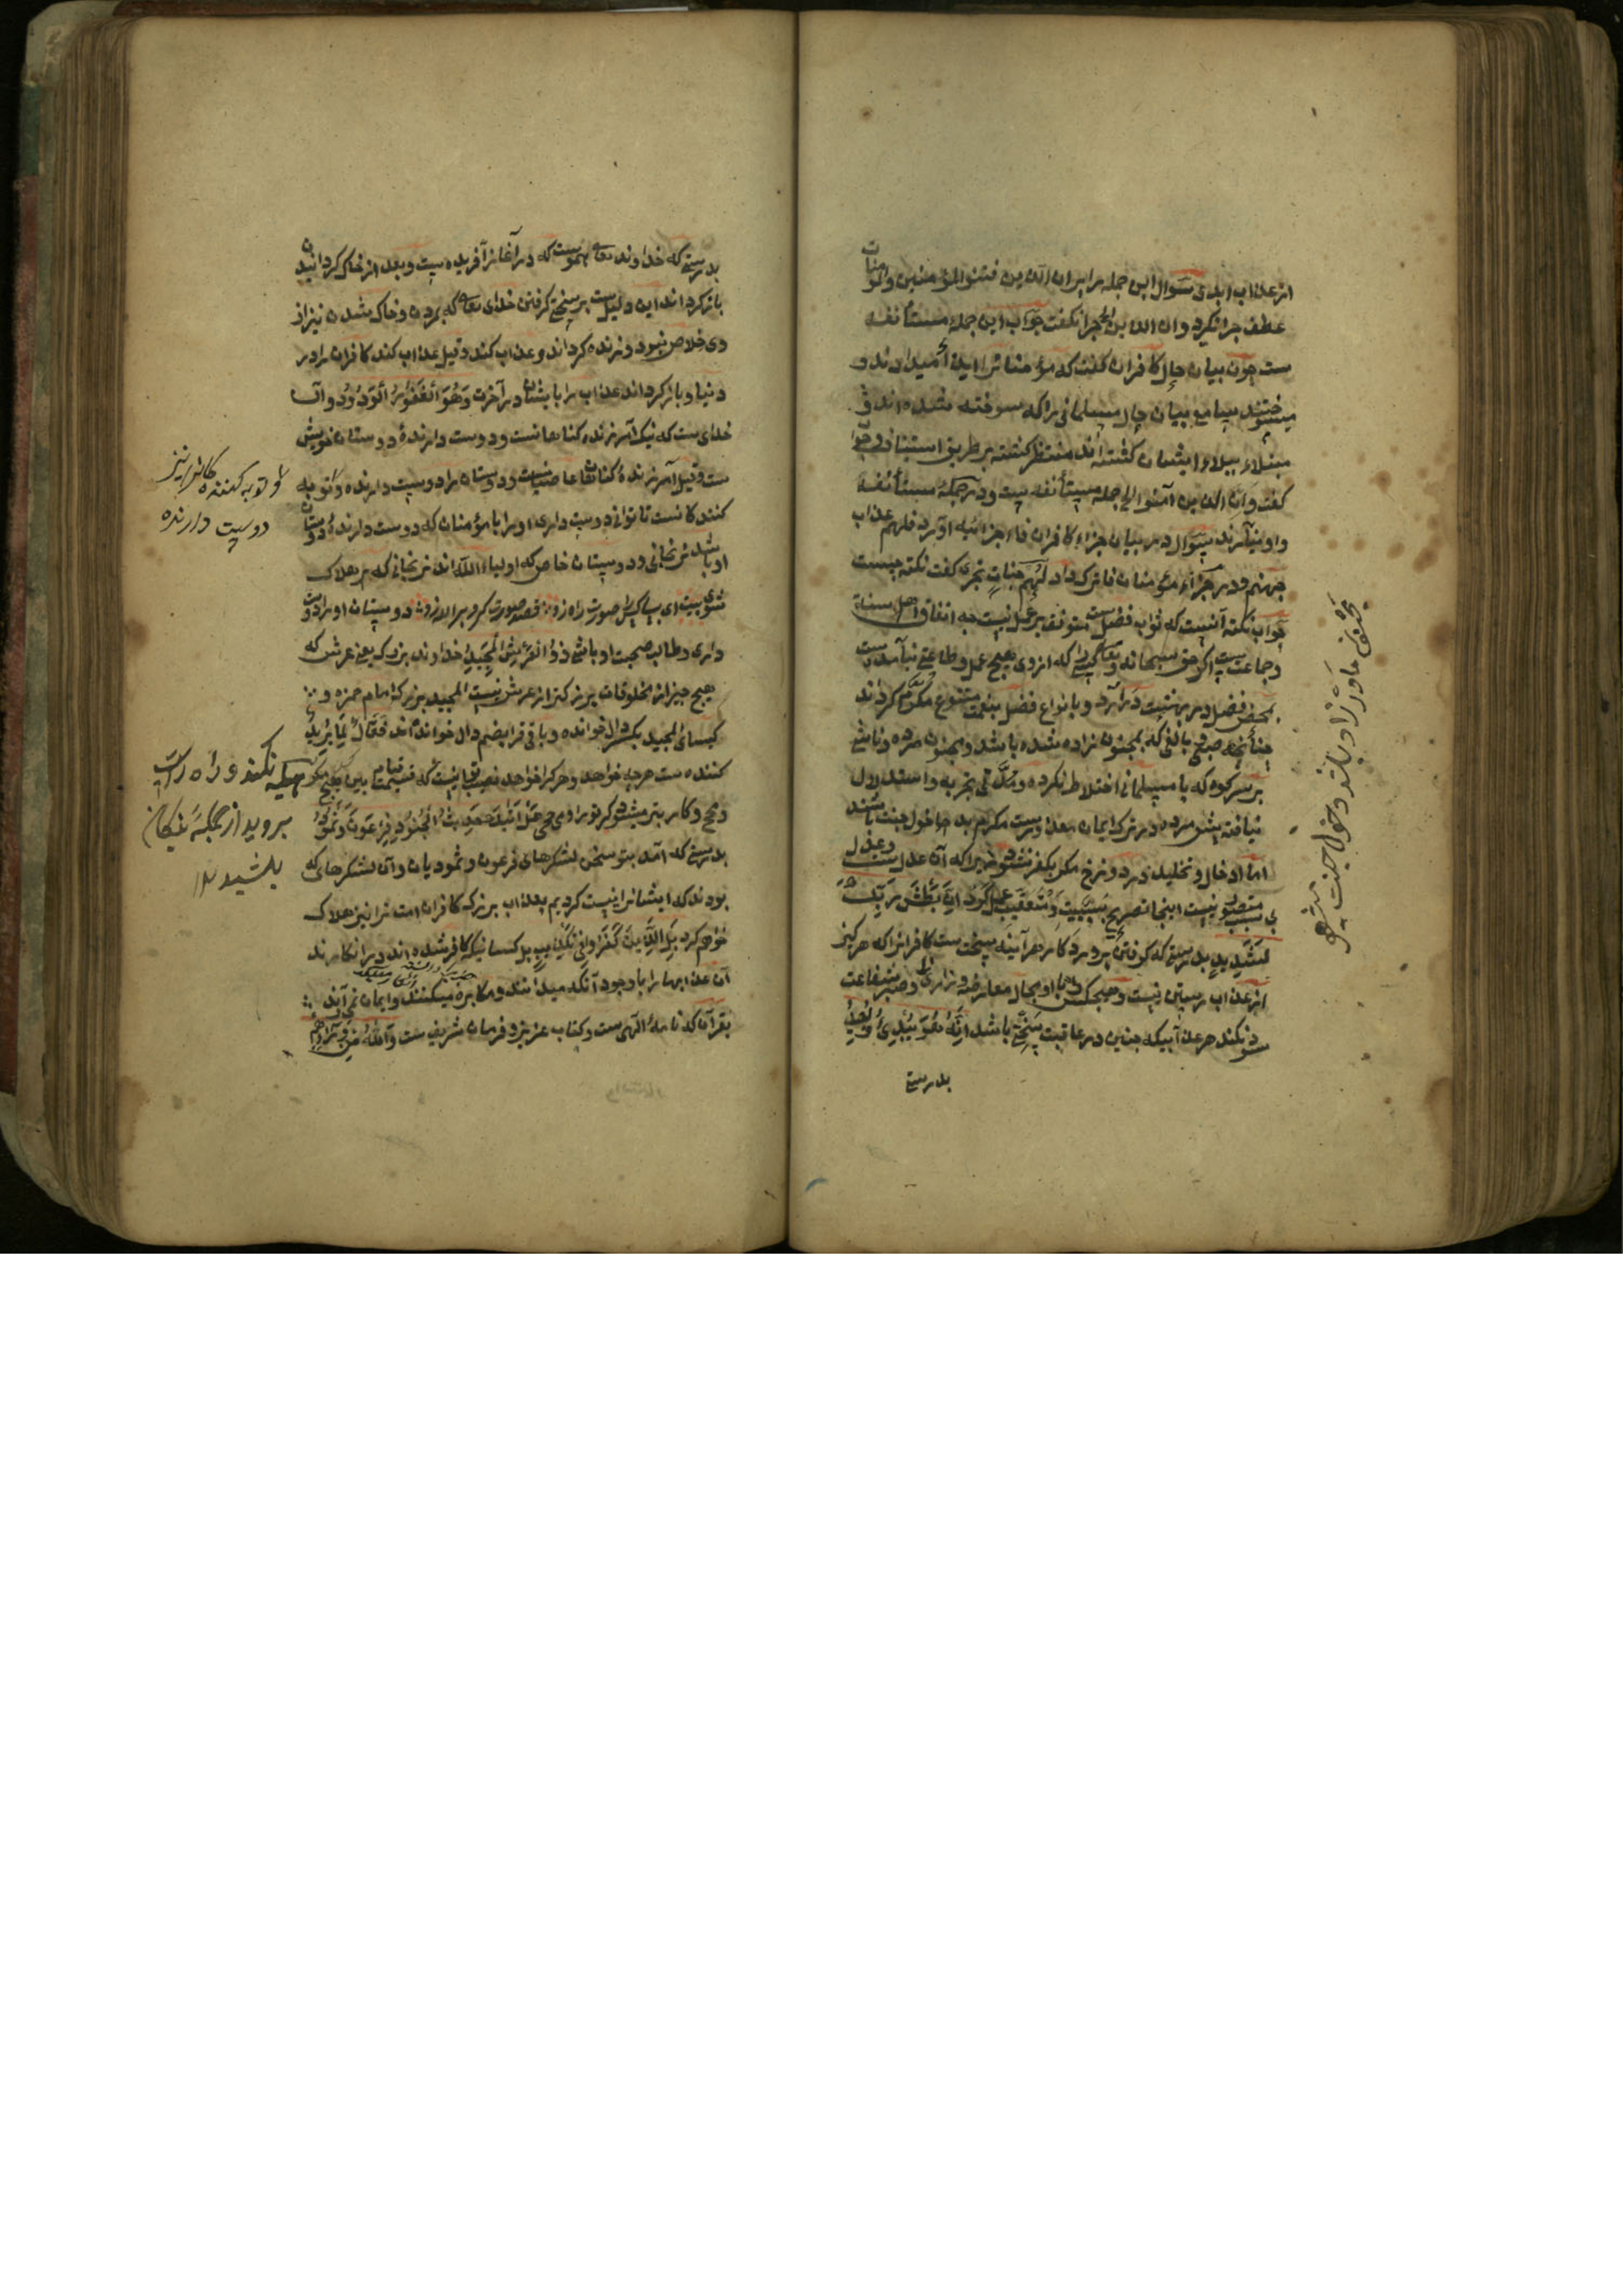 از عذاب ابدی سوال این جمله را بر ان الذین فتنوا المؤمنین والمؤمنات
عطف چرا نکرد و ان الذین الخ چرا نگفت جواب این جملهٔ مستأنفه
ست چون بیان حال کافران گفت که مؤمنانرا ایذا میدادند و
میسوختند سامع بیان حال مسلمانی را که سوخته شده اند و
مبتلاء ببلاء ایشان گشته اند منتظر گشته بر طریق استیناف
گفت و ان الذین آمنوا الی جمله مستأنفه ست و در جملهٔ مستأنفه
واو نیارند سوال در بیان جزاء کافران فاء جزائیه آورد فلهم عذاب
جهنم و در جزاء مؤمنان فا ترک داد لهم جنات تجری گفت نکته چیست
جواب نکته آنست که ثواب فضل ست متوقف بر عمل نیست به اتفاق اهل سنة
و جماعت ست اگر حق سبحانه وتعالی کسی را که از وی هیچ عمل و طاعتی نیامده ست
بمحض فضل در بهشت درآرد و با نواع فضل بنعمت متنوع مکرم گرداند
چنانچه صبی بالغی که مجنون زاده شده باشد و مجنون مرده و ناشی
بر سر کوه که با مسلمانی اختلاط نکرده و مدتی تجربه و استدلال
نیافته پیش مرده در ترک ایمان معذورست مکرم بدخول جنت باشند
اما ادخال و تخلید در دوزخ مگر بکفر نشود چرا که آن عدل ست و عدل
بی سبب متصور نیست اینجا تصریح بسببیت و تعقیب عمل کرد ان بطش ربک
لشدید بدرستی که گرفتن پروردگار هر آینه سخت ست کافرانرا که هرگز
از عذاب رستن نیست و هیچکس را با او مجال معارضه و زاری و صبر شفاعت
سود نکند هر عذابیکه چنین در عاقبت سخت باشد انه هو یبدئ ویعید
بدرستی
مجنون مادرزاد باشد دخول جنت میشود
بدرستی که خداوند تعالی هموست که در آغاز آفریده ست و بعد از خاک گردانیدن
باز گرداند این دلیل ست بر سختی گرفتن خدای تعالی که بمردن و خاک شدن نیز از
وی خلاص نبود و زنده گرداند و عذاب کند و قیل عذاب کند کافران را در
دنیا و باز گرداند عذاب را بایشان در آخرت وهو الغفور الودود و آن
خدای ست که نیک آمرزنده گناهانست و دوست دارندهٔ دوستان خویش
ست و قیل آمرزندهٔ گناهان عاصیانست و دوستان را دوست دارنده و توبه
کنندکانست تا توانی دوست داری او را با مؤمنان که دوست دارندهٔ دوستان
او باشد نرنجانی و دوستان خاص که اولیاء الله اند نرنجانی که هلاک
شوی بیت ای بسا کس را صورت راه زد قصد صورت کرد بر الله زد دوستان او را دوست
داری و طالب صحبت او باشی ذو العرش المجید خداوند بزرگ یعنی عرش که
هیچ چیز از مخلوقات بزرگتر از عرش نیست المجید بزرگ امام حمزه و
کسائی المجید بکسر دال خوانده و باقی قرا بضم دال خوانده اند فعال لما یرید
کننده ست هرچه خواهد و هرکرا خواهد نصیب
هل اتیک حدیث الجنود فرعون وثمود
بدرستی که آمد بتو سخن لشکرهای فرعون و ثمودیان و آن لشکرهای که
بودند که ایشانرا نیست کردیم بعذاب بزرگ کافران امت ترا نیز هلاک
خواهم کرد بل الذین کفروا فی تکذیب بل کسانیکه کافر شده اند در انکارند
آن عذابها را باوجود آنکه میدانند و مکابره میکنند و ایمان نمی آرند
بقرآن که نامهٔ الهی ست و کتاب عزیز و فرمان شریف ست والله من ورائهم
و توبه کننده کانرا نیز
دوست دارنده
تکیه نکنند و راه راست
بروید از جملهٔ نیکان
باشید